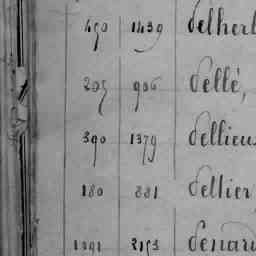 450 1439 delherb
205 906 dellé,
390 1379 dellieux
180 881 deltier
1091 2153 denard